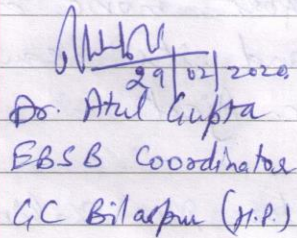 29/02/2020
Dr. Atul Gupta
EBSB Coordinator
GC Bilaspur (H.P.)